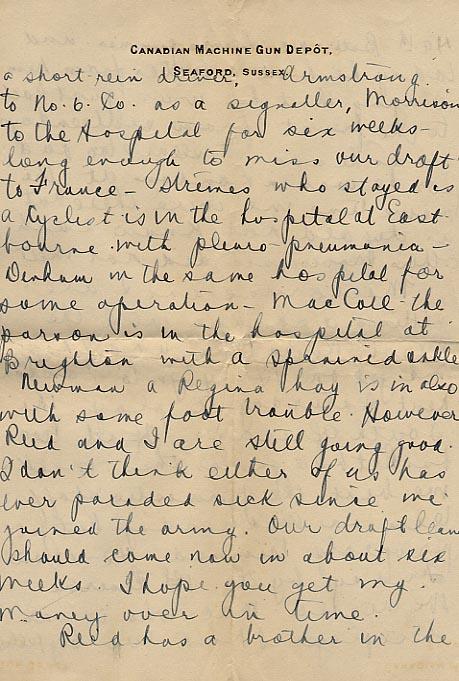 CANADIAN MACHINE GUN DEPÔT,
SEAFORD, SUSSEX.
a short rein driver, Armstrong
to No. 6. Co. as a signaller, Morrison
to the Hospital for six weeks -
long enough to miss our draft
to France - who stayed is
a Cyclist is in the hospital at East
bourne with pleuro-pneumonia -
Denham in the same hospital for
some operation - MacColl the
parson is in the hospital at
Brighton with a ankle
Newman a Regina boy is in also
with some foot trouble. However
Reid and I are still going good.
I don't think either of us has
ever paraded sick since we
joined the army. Our draft
should come now in about six
weeks. I hope you get my
money over in time.
Reid has a brother in the